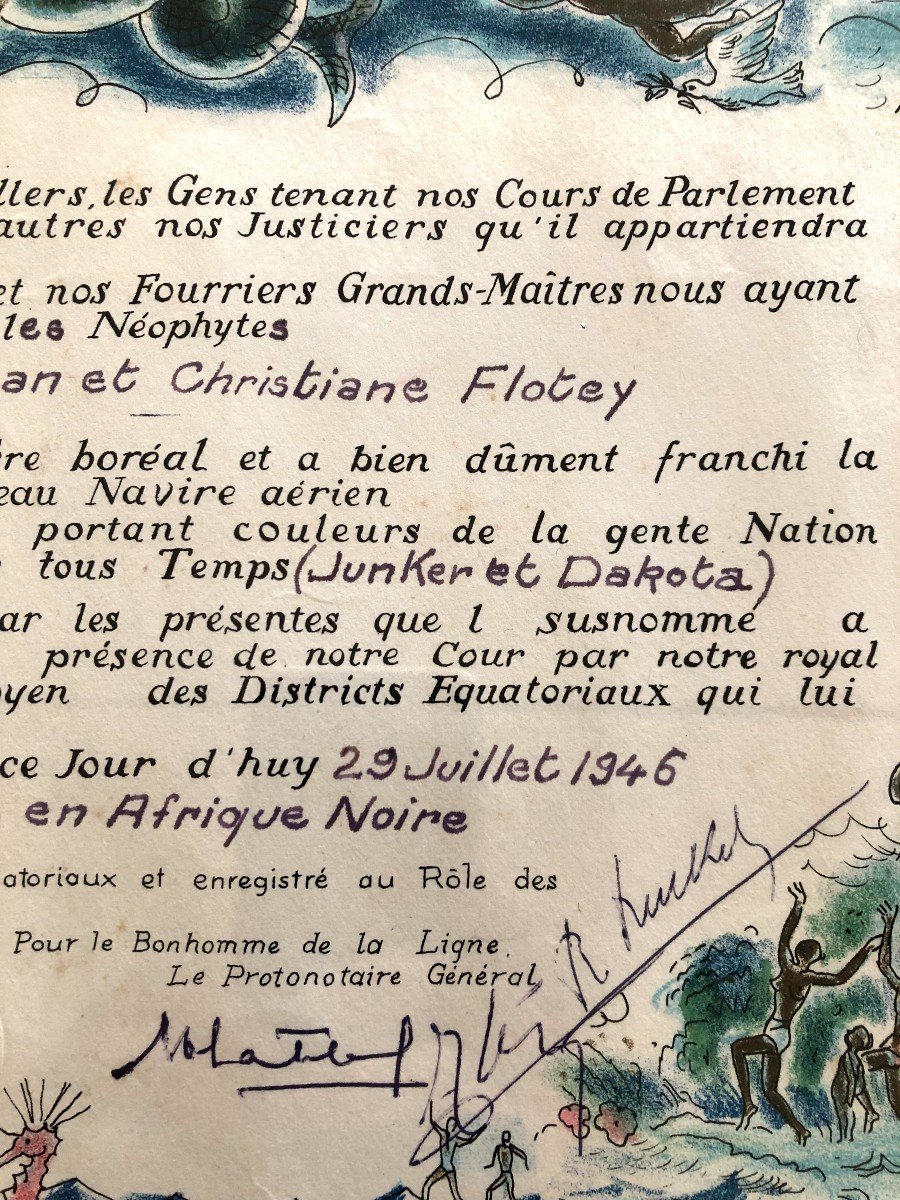 llers, les Gens tenant nos Cours de Parlement
autres nos Justiciers qu'il appartiendra
et nos Fourriers Grands-Maîtres nous ayant
les Néophytes
an et Christiane Flotey
re boréal et a bien dûment franchi la
eau Navire aérien
portant couleurs de la gente Nation
tous Temps (Junker et Dakota)
ar les présentes que l susnommé a
présence de notre Cour par notre royal
oyen des Districts Equatoriaux qui lui
ce Jour d'huy 29 Juillet 1946
en Afrique Noire
atoriaux et enregistré au Rôle des
Pour le Bonhomme de la Ligne.
Le Protonotaire Général